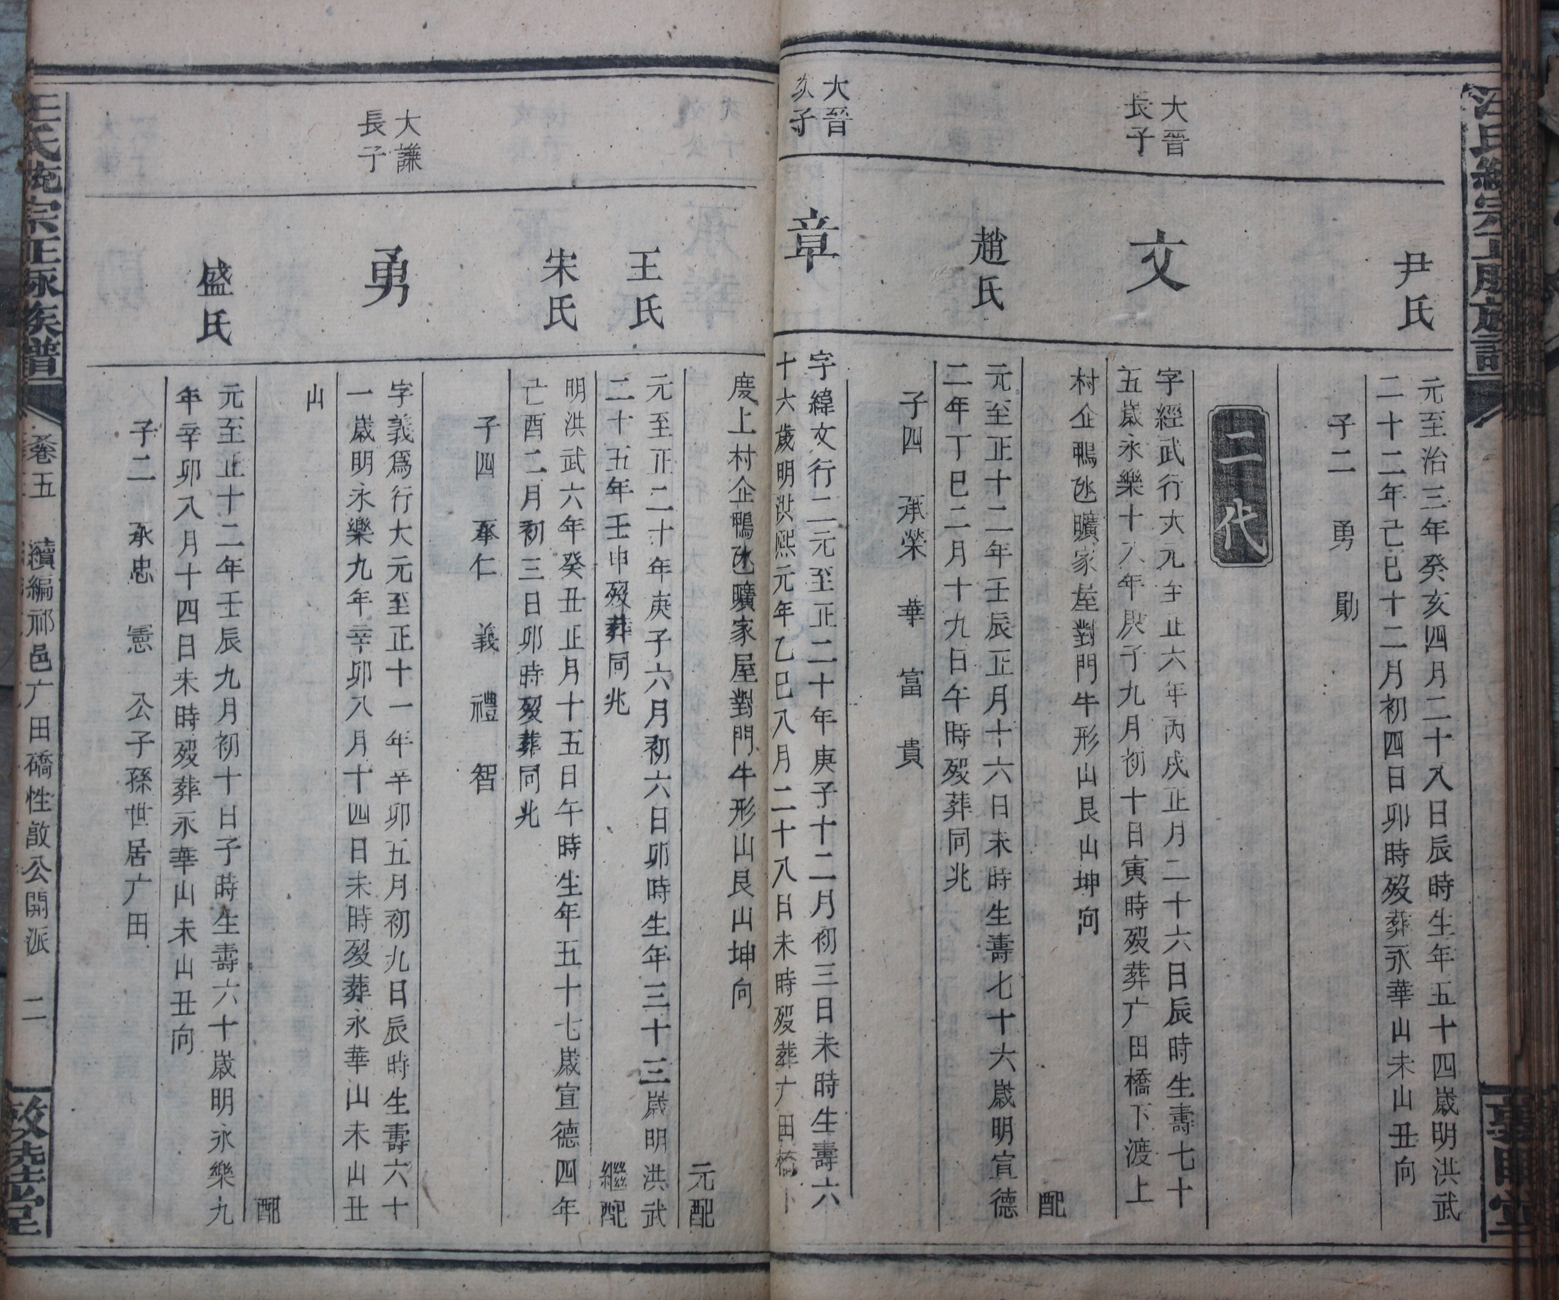 尹氏
元至治三年癸亥四月二十八日辰時生年五十四歲明洪武
二十二年己巳十二月初四日卯時歿葬永華山未山丑向
子二 勇 勛
二代
大晉
長子
文
字經武行大元至正六年丙戌正月二十六日辰時生壽七十
五歲永樂十八年庚子九月初十日寅時歿葬广田橋下渡上
村企鴨氹曠家屋對門牛形山艮山坤向
配
趙氏
元至正十二年壬辰正月十六日未時生壽七十六歲明宣德
二年丁巳二月十九日午時歿葬同兆
子四 承榮 華 富 貴
大晉
次子
章
字緯文行二元至正二十年庚子十二月初三日未時生壽六
十六歲明洪熙元年乙巳八月二十八日未時歿葬广田橋
慶上村企鴨氹曠家屋對門牛形山艮山坤向
元配
王氏
元至正二十年庚子六月初六日卯時生年三十三歲明洪武
二十五年壬申歿葬同兆
繼配
宋氏
明洪武六年癸丑正月十五日午時生年五十七歲宣德四年
亡酉二月初三日卯時歿葬同兆
子四 奉仁 義 禮 智
大謙
長子
勇
字義爲行大元至正十一年辛卯五月初九日辰時生壽六十
一歲明永樂九年辛卯八月十四日未時歿葬永華山未山丑
山
配
盛氏
元至正十二年壬辰九月初十日子時生壽六十歲明永樂九
年辛卯八月十四日未時歿葬永華山未山丑向
子二 承忠 憲 公子孫世居广田
汪氏統宗正脉族譜
卷五
續編祁邑广田橋性敔公開派
二